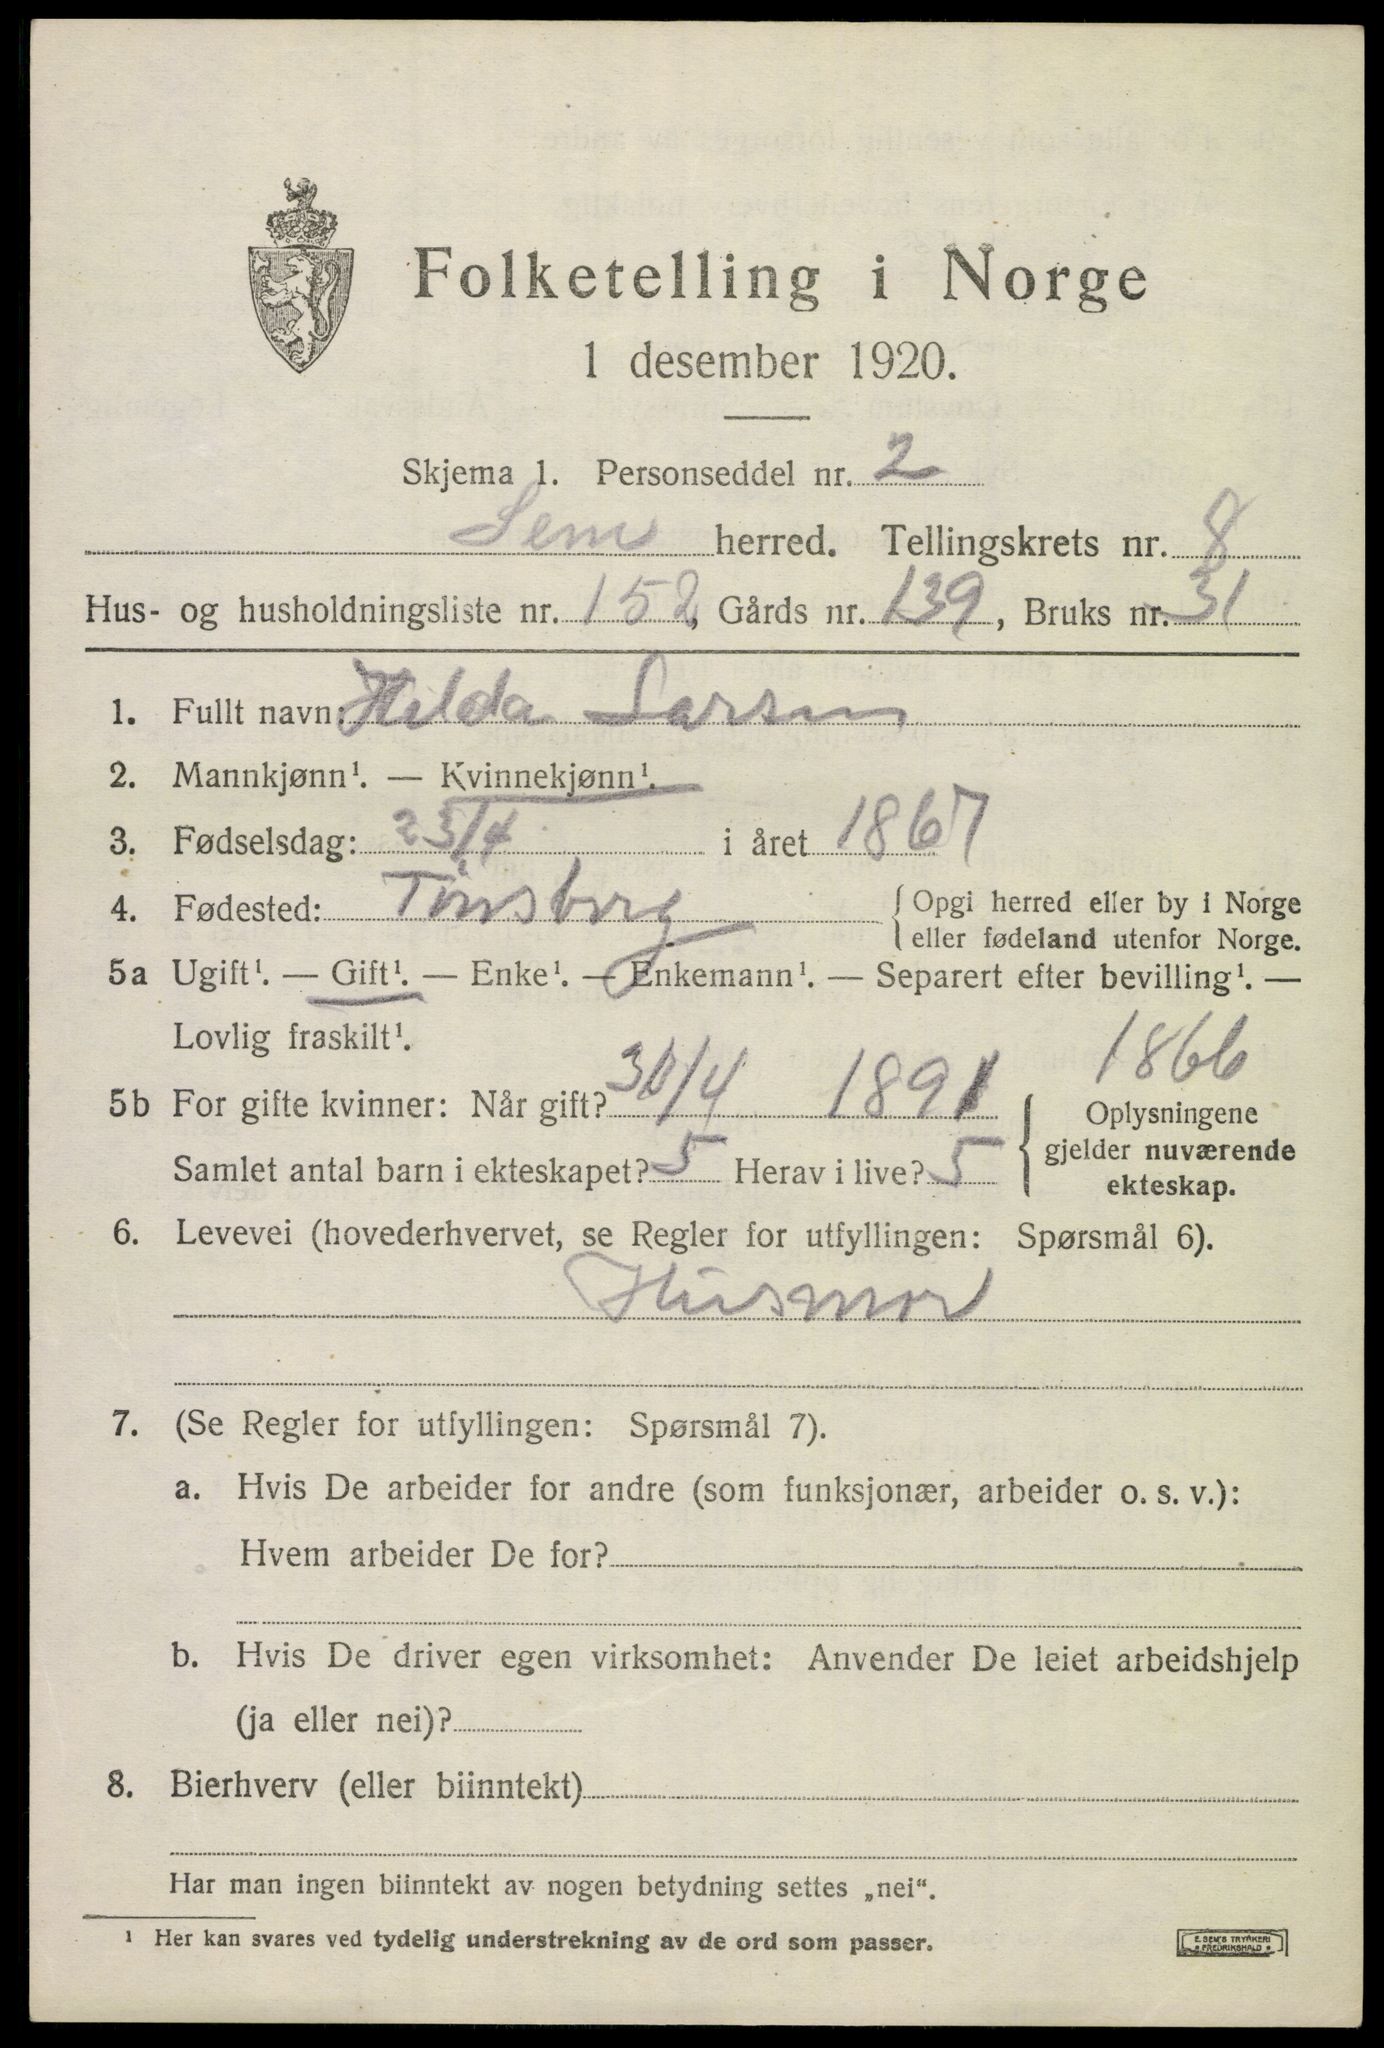 Folketelling i Norge
1 desember 1920.
Skjema 1. Personseddel nr. 2
Sem herred. Tellingskrets nr. 8
Hus- og husholdningsliste nr. 152, Gårds nr. 139, Bruks nr. 31
1. Fullt navn: Hilda Larsen
2. Mannkjønn¹. — Kvinnekjønn¹.
3. Fødselsdag: 23/4 i året 1867
4. Fødested: Tønsberg { Opgi herred eller by i Norge
eller fødeland utenfor Norge.
5a Ugift¹. — Gift¹. — Enke¹. — Enkemann¹. — Separert efter bevilling¹. —
Lovlig fraskilt¹.
1866
5b For gifte kvinner: Når gift? /4 1891
Samlet antal barn i ekteskapet? 5 Herav i live? 5
{ Oplysningene
gjelder nuværende
ekteskap.
6. Levevei (hovederhvervet, se Regler for utfyllingen: Spørsmål 6).
Husmor
7. (Se Regler for utfyllingen: Spørsmål 7).
a. Hvis De arbeider for andre (som funksjonær, arbeider o. s. v.):
Hvem arbeider De for?
b. Hvis De driver egen virksomhet: Anvender De leiet arbeidshjelp
(ja eller nei)?
8. Bierhverv (eller biinntekt)
Har man ingen biinntekt av nogen betydning settes „nei“.
¹ Her kan svares ved tydelig understrekning av de ord som passer.
E. SEM'S TRYKKERI
FREDRIKSHALD